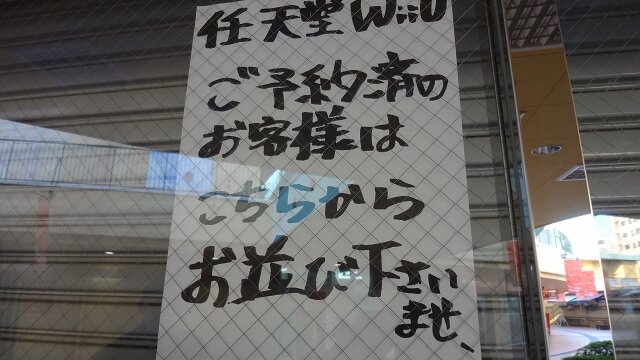 任天堂WiiU
ご予約済の
お客様は
こちらから
お並び下さい
ませ、